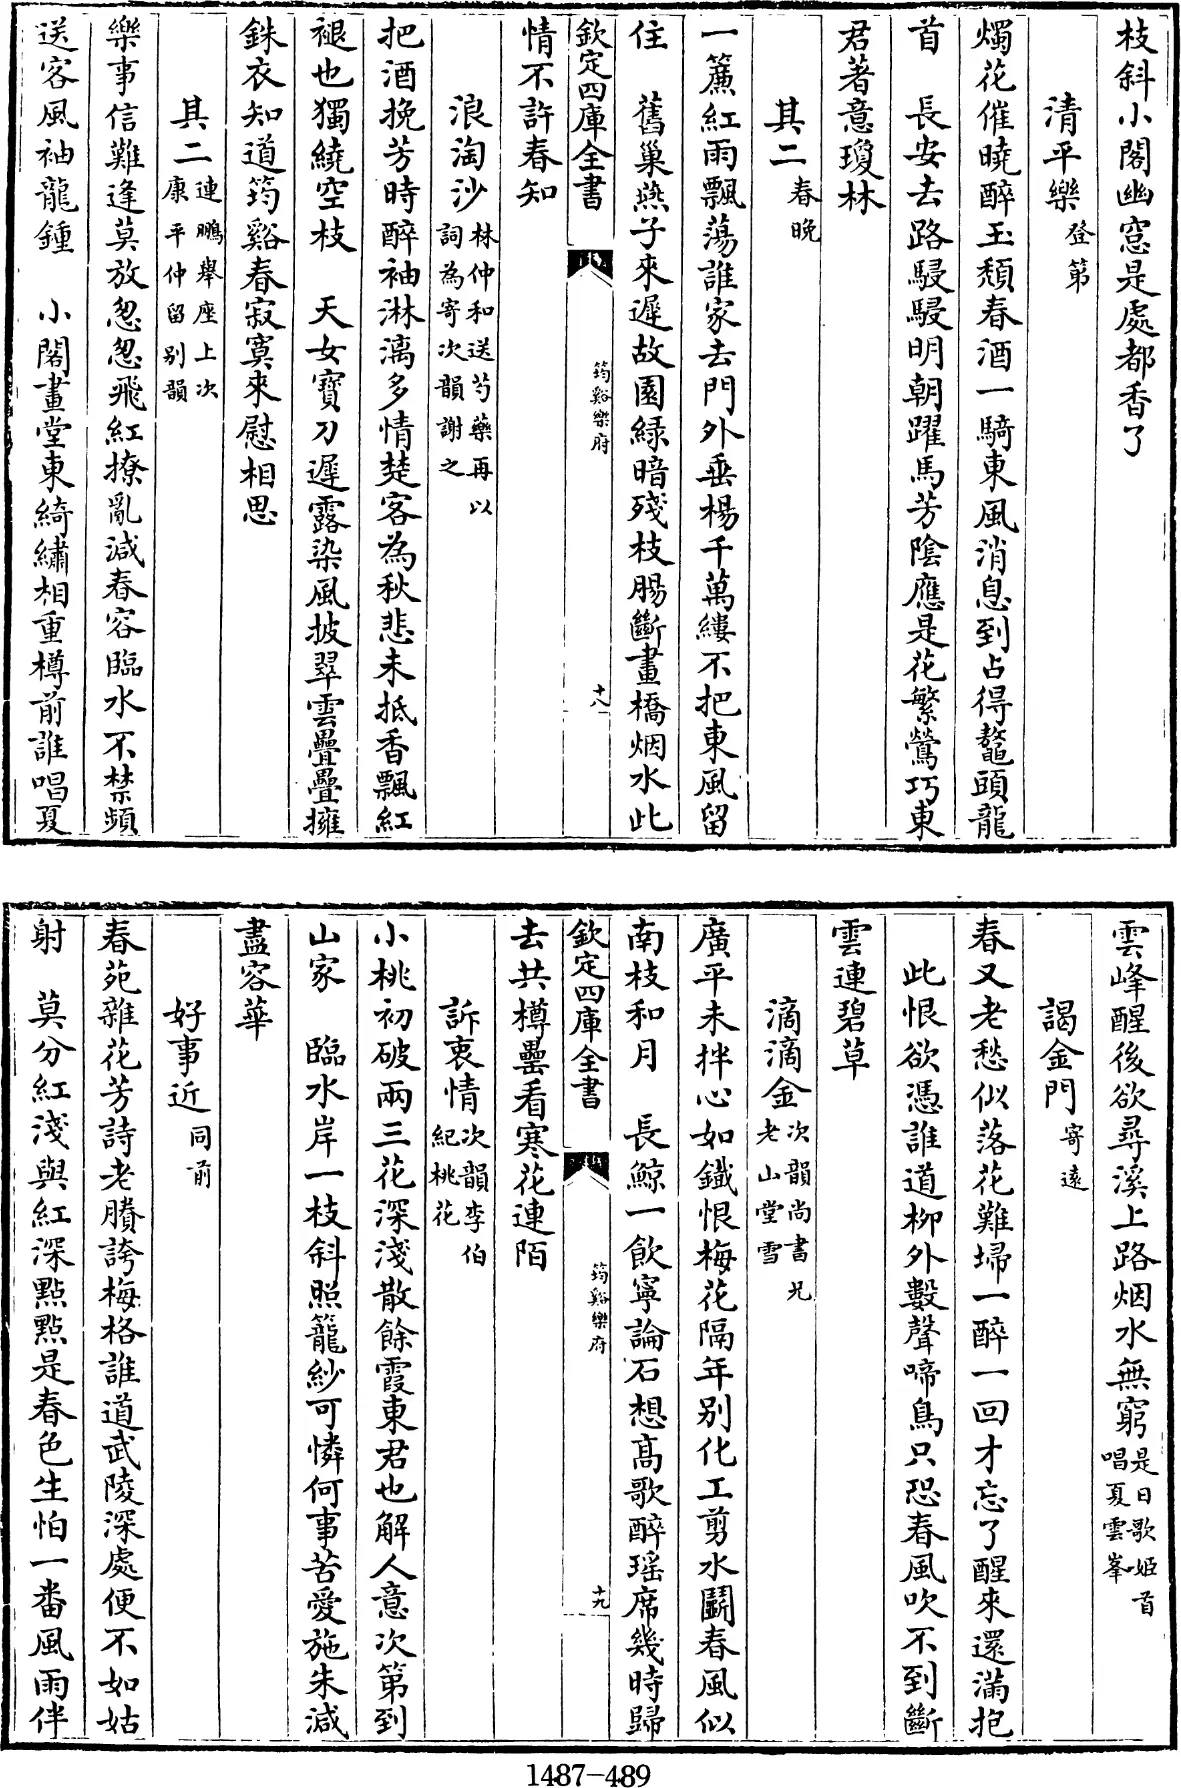 枝斜小閣幽窓是處都香了
清平樂登第
燭花催曉醉玉頽春酒一騎東風消息到占得鼇頭龍
首　長安去路駸駸明朝躍馬芳陰應是花繁鶯巧東
君著意瓊林
其二春晚
一簾紅雨飄蕩誰家去門外垂楊千萬縷不把東風留
住　舊巢燕子來遲故園緑暗殘枝腸斷畫橋烟水此
欽定四庫全書
筠谿樂府
十八
情不許春知
浪淘沙林仲和送芍藥再以
詞為寄次韻謝之
把酒挽芳時醉袖淋漓多情楚客為秋悲未抵香飄紅
褪也獨繞空枝　天女寶刀遲露染風披翠雲疊疊擁
銖衣知道筠谿春寂寞來慰相思
其二連鵬舉座上次
康平仲留别韻
樂事信難逢莫放怱怱飛紅撩亂減春容臨水不禁頻
送客風袖龍鍾　小閣畫堂東綺繡相重樽前誰唱夏
雲峰醒後欲尋溪上路烟水無窮是日歌姬首
唱夏雲峯
謁金門寄遠
春又老愁似落花難埽一醉一回才忘了醒來還滿抱
此恨欲憑誰道柳外數聲啼鳥只恐春風吹不到斷
雲連碧草
滴滴金次韻尚書兄
老山堂雪
廣平未拌心如鐵恨梅花隔年别化工剪水鬭春風似
南枝和月　長鯨一飲寧論石想高歌醉瑶席幾時歸
欽定四庫全書
筠谿樂府
十九
去共樽罍看寒花連陌
訴衷情次韻李伯
紀桃花
小桃初破兩三花深淺散餘霞東君也解人意次第到
山家　臨水岸一枝斜照籠紗可憐何事苦愛施朱減
盡容華
好事近同前
春苑雜花芳詩老賸誇梅格誰道武陵深處便不如姑
射　莫分紅淺與紅深點點是春色生怕一番風雨伴
1487-489